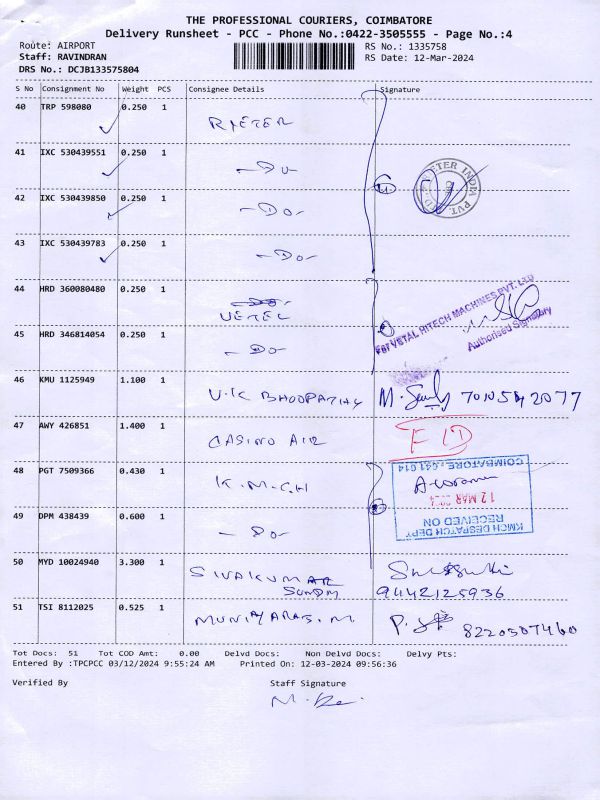 THE PROFESSIONAL COURIERS, COIMBATORE
Delivery Runsheet - PCC - Phone No.:0422-3505555 - Page No.:4
Route: AIRPORT RS No.: 1335758
Staff: RAVINDRAN RS Date: 12-Mar-2024
DRS No.: DCJB133575804
S No Consignment No Weight PCS Consignee Details Signature
40 TRP 598080 0.250 1 RIETER
41 IXC 530439551 0.250 1 -Do-
42 IXC 530439850 0.250 1 -Do-
43 IXC 530439783 0.250 1 -Do-
44 HRD 360080480 0.250 1 VETEL
For VETAL HITECH MACHINES PVT. LTD
Authorised Signatory
45 HRD 346814054 0.250 1 -Do-
46 KMU 1125949 1.100 1 V.K BHOOPATHY M. 7010542077
47 AWY 426851 1.400 1 CASINO AIR
48 PGT 7509366 0.430 1 K.M.C.H
COIMBATORE - 641 014
12 MAR 2024
RECEIVED ON
KMCH DESPATCH DEPT
49 DPM 438439 0.600 1 -Do-
50 MYD 10024940 3.300 1 SIVAKUMAR
9442125936
51 TSI 8112025 0.525 1 MUNIYARAJ. M P. 8220507460
Tot Docs: 51 Tot COD Amt: 0.00 Delvd Docs: Non Delvd Docs: Delvy Pts:
Entered By :TPCPCC 03/12/2024 9:55:24 AM Printed On: 12-03-2024 09:56:36
Verified By Staff Signature